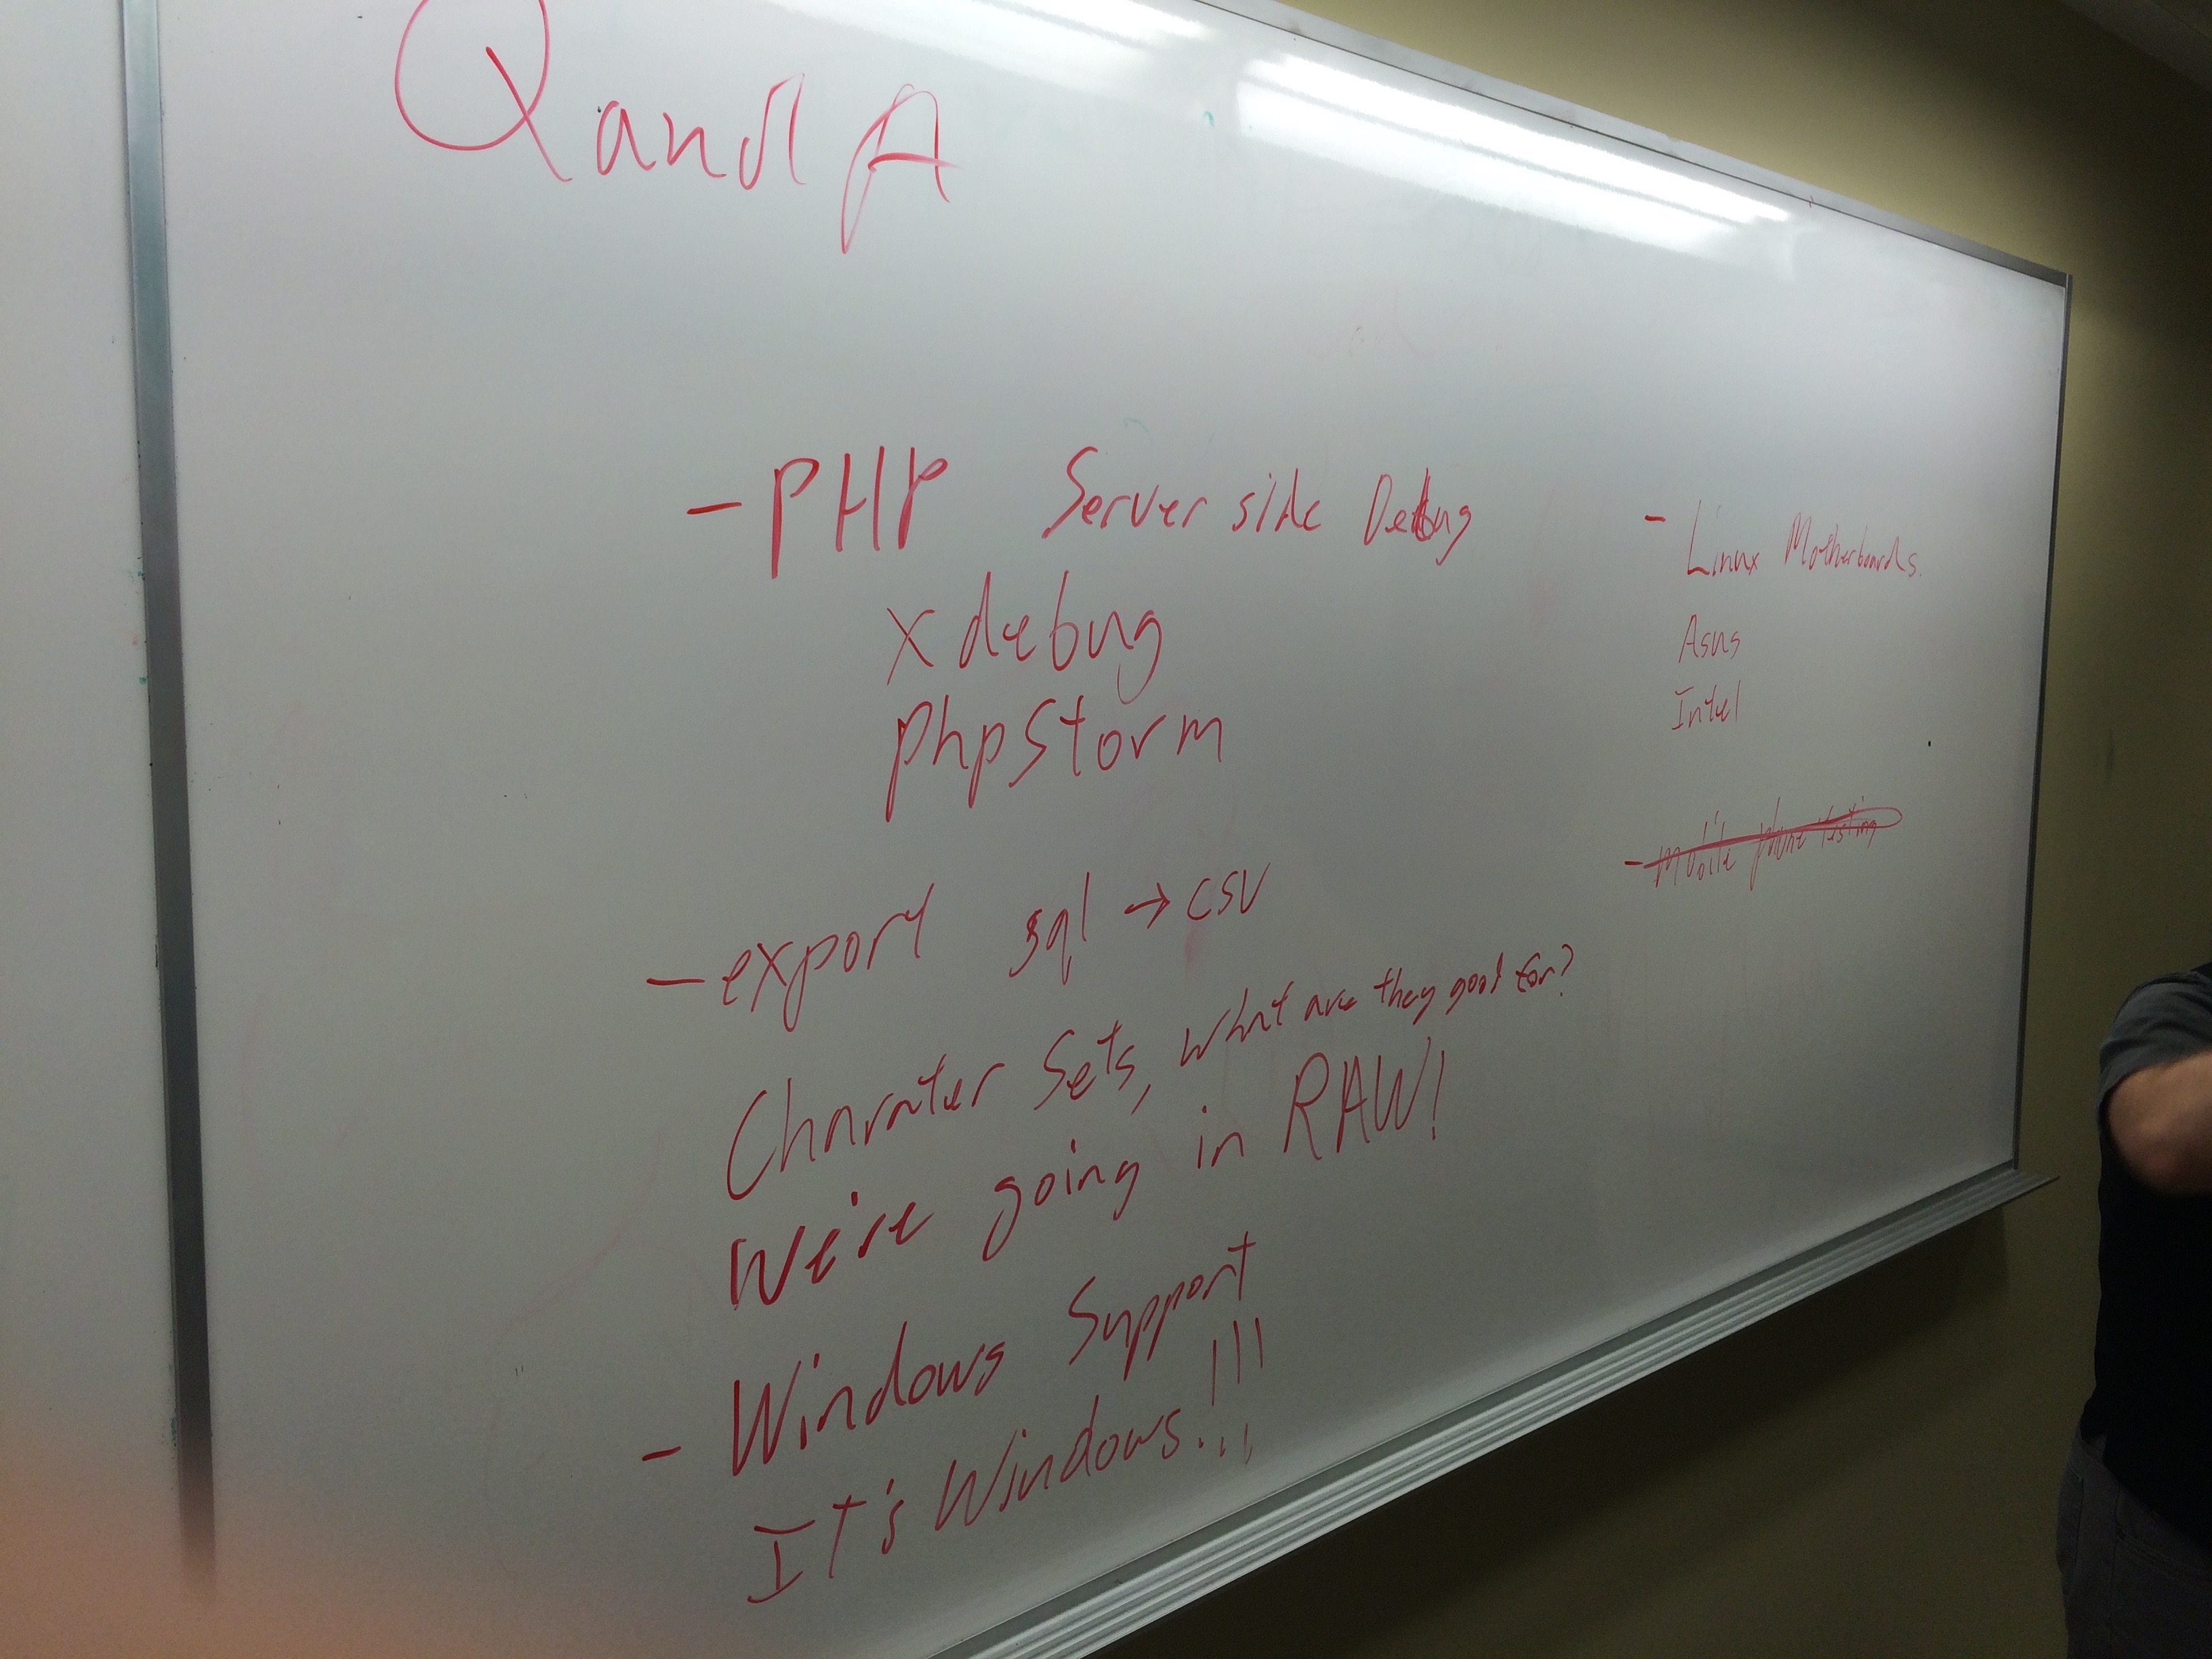 Q and A
- PHP Server side Debug
xdebug
phpStorm
- export sql → csv
Charater Sets, what are they good for?
We're going in RAW!
- Windows Support
It's Windows!!!
- Linux Motherboards.
Asus
Intel
- mobile phone testing